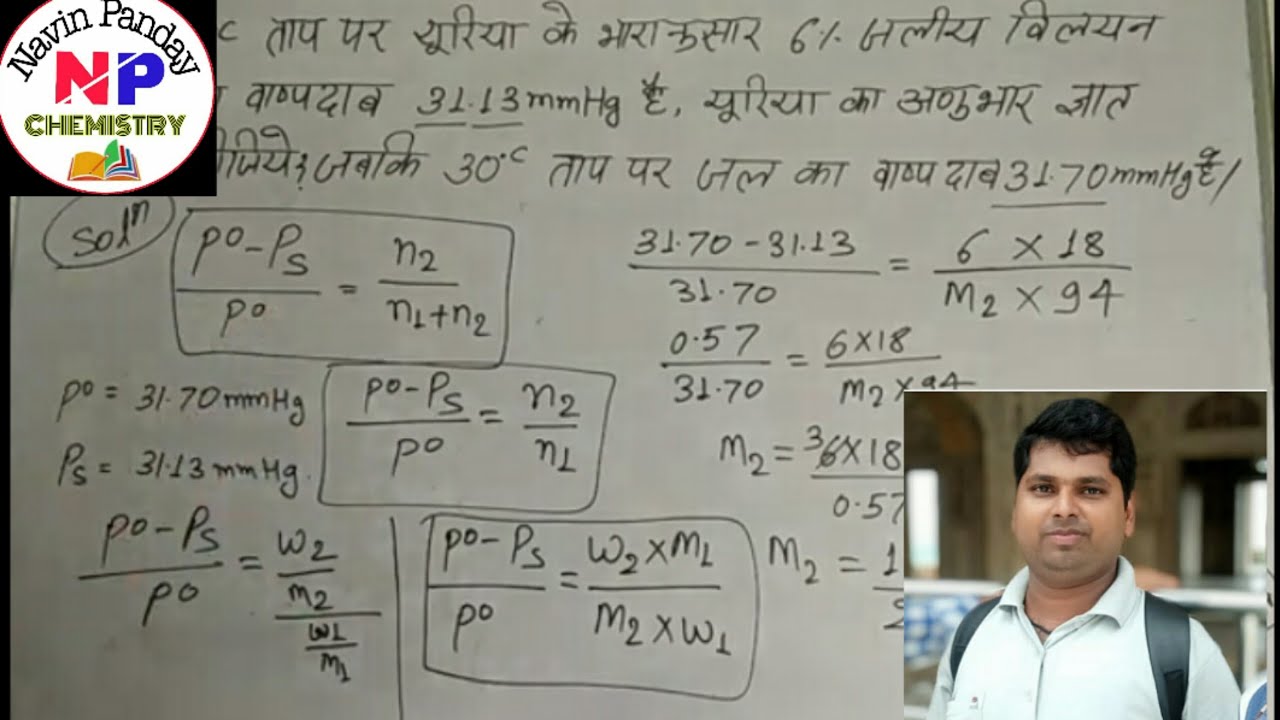 Navin Panday
NP
CHEMISTRY
ताप पर यूरिया के भारानुसार 6% जलीय विलयन
वाष्पदाब 31.13 mmHg है, यूरिया का अणुभार ज्ञात
जबकि 30°C ताप पर जल का वाष्पदाब 31.70 mmHg है/
Solⁿ
(P⁰-Ps)/P⁰ = n2/(n1+n2)
P⁰ = 31.70 mmHg
Ps = 31.13 mmHg.
(P⁰-Ps)/P⁰ = n2/n1
(P⁰-Ps)/P⁰ = (w2/m2)/(w1/m1)
(P⁰-Ps)/P⁰ = (w2×M1)/(M2×w1)
(31.70-31.13)/31.70 = (6×18)/(M2×94)
0.57/31.70 = (6×18)/(M2×94)
M2 = 6×18
0.57
M2 =